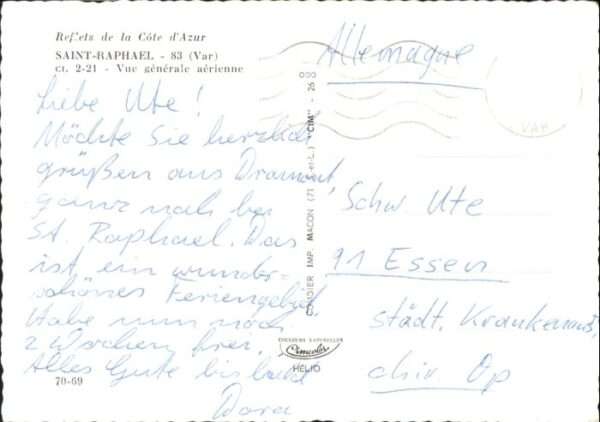 Reflets de la Côte d'Azur
SAINT-RAPHAEL - 83 (Var)
CT. 2-21 - Vue générale aérienne
Liebe Ute!
Möchte Sie herzlich
grüßen aus Dramont,
ganz nah bei
St. Raphael. Das
ist ein wunder-
schönes Feriengebiet
Habe nun noch
2 Wochen frei.
Alles Gute bis bald
Dora
70-69
COMBIER IMP. MACON (71 S.-et-L.) "CIM" - 26 000
COULEURS NATURELLES
Cimcolor
HELIO
VAR
Allemagne
Schw. Ute
91 Essen
städt. Krankenanst.
chir. Op